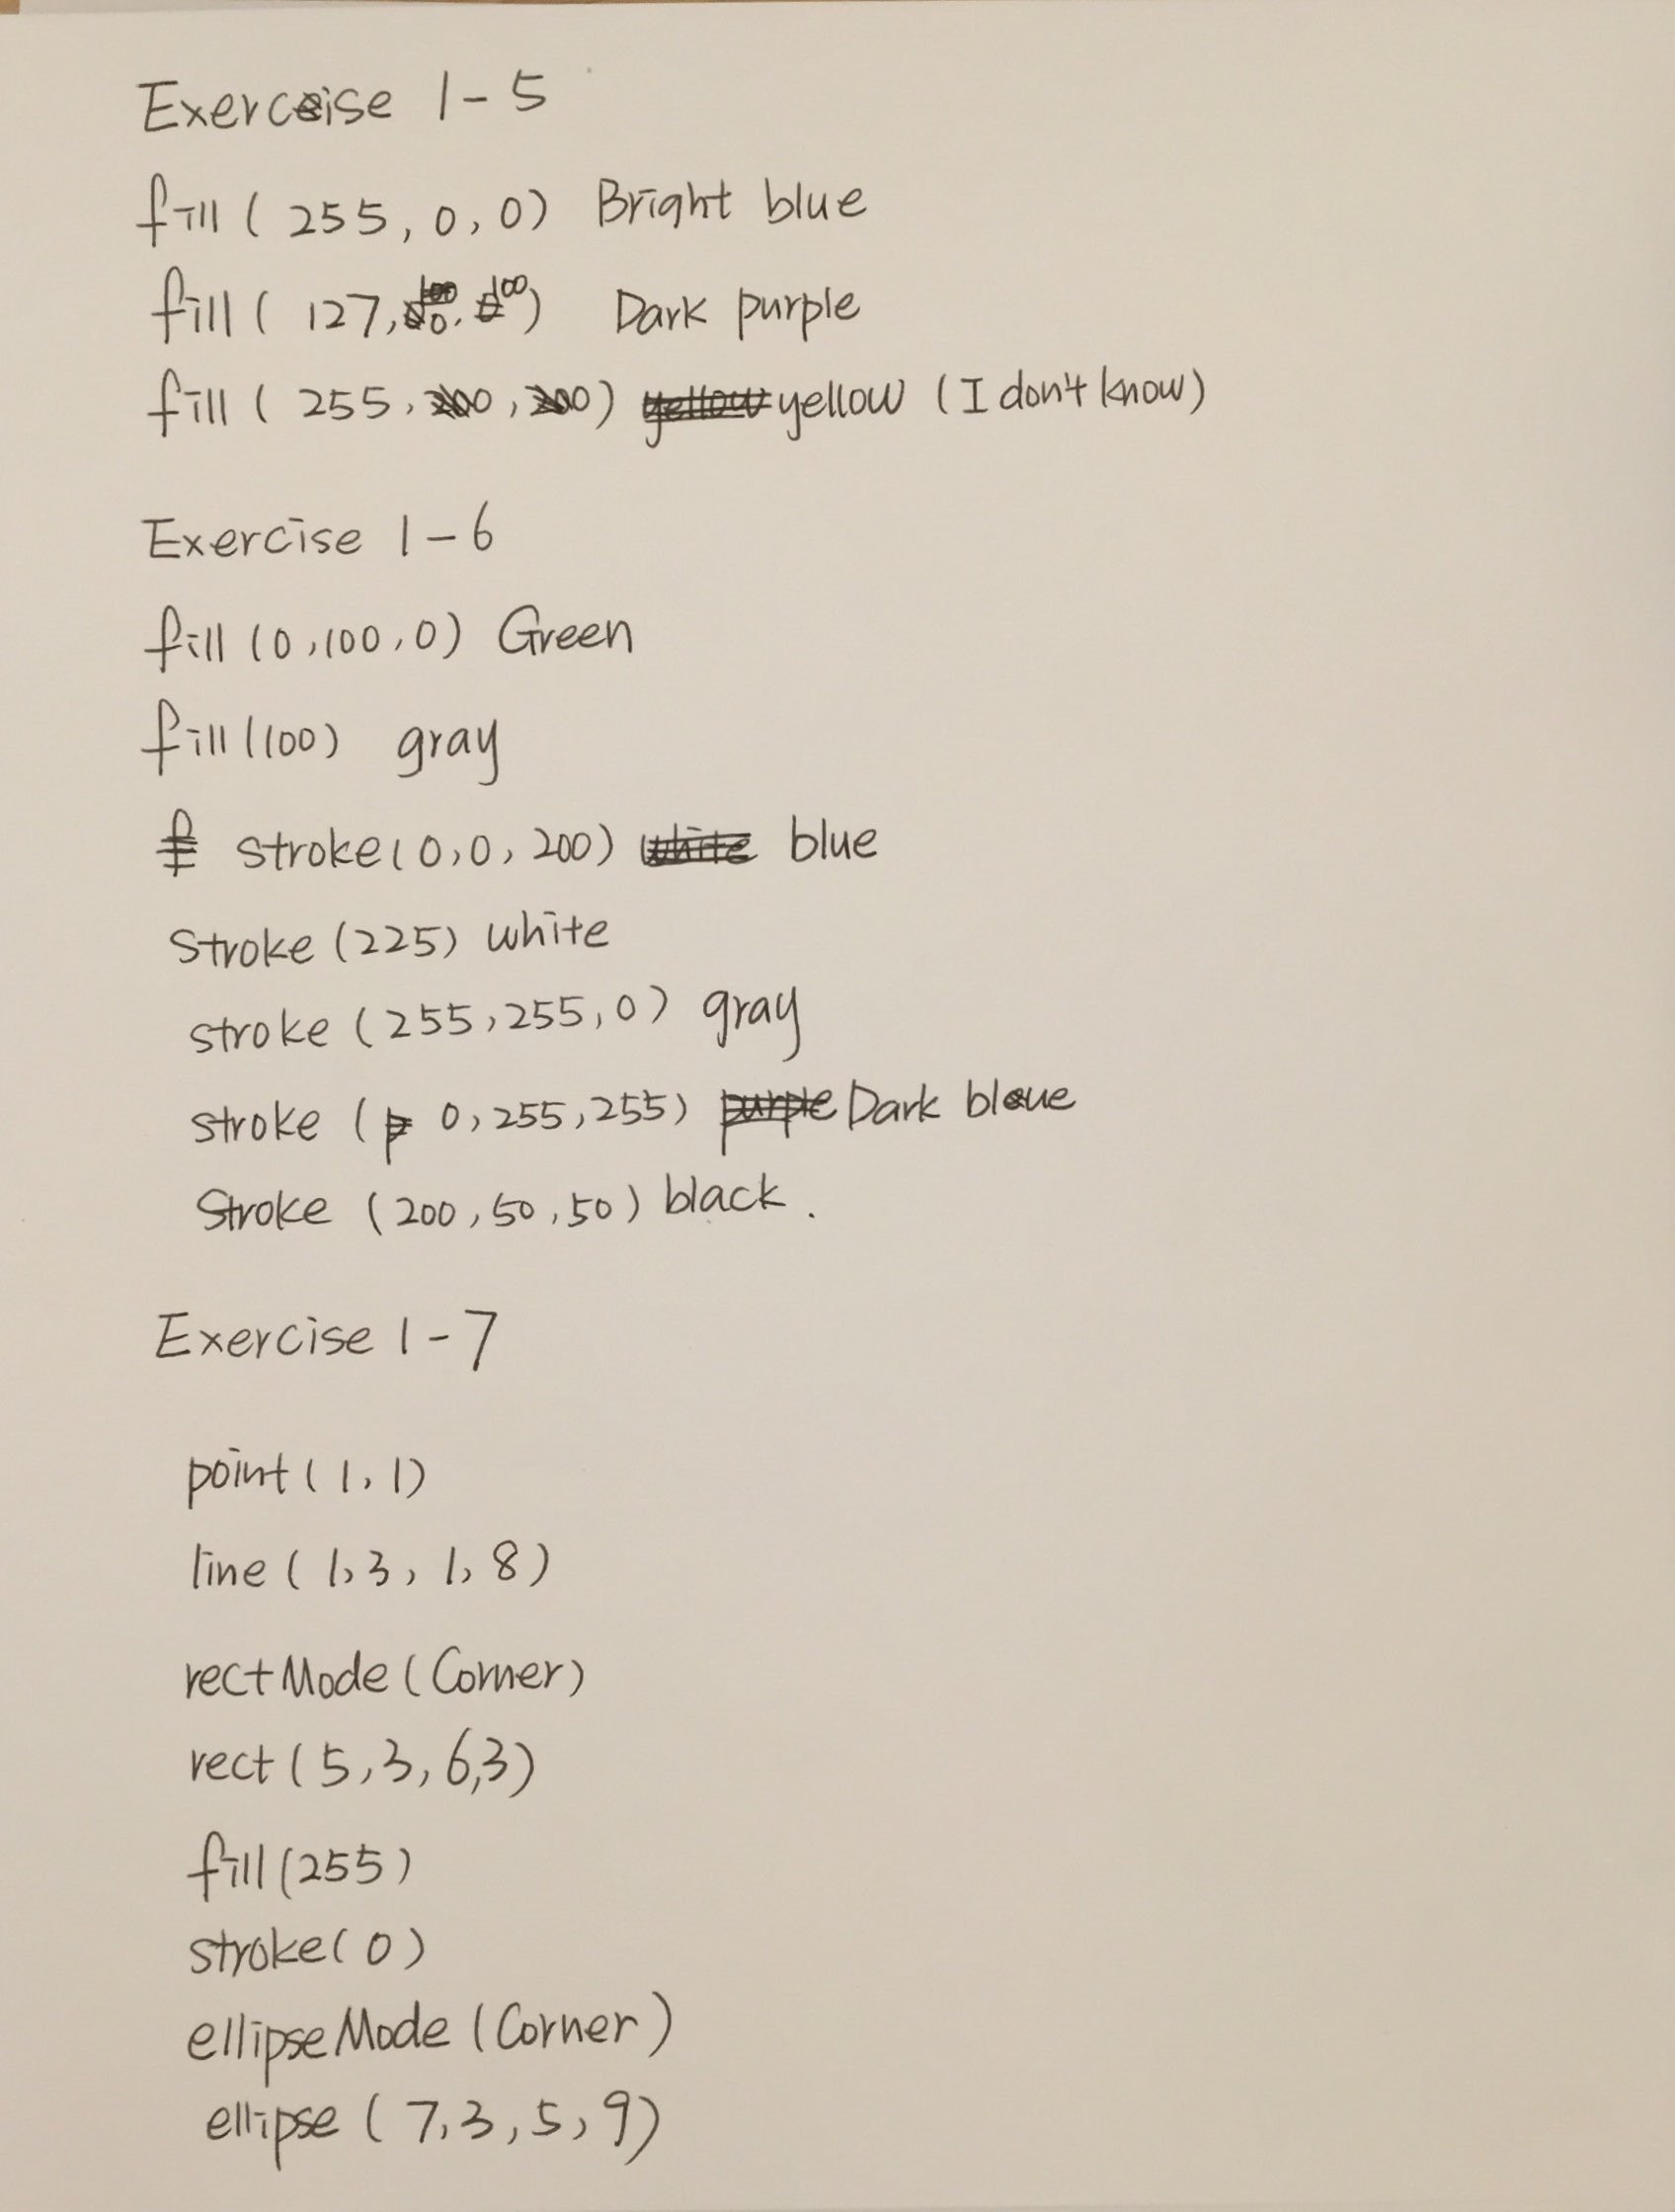 Exerceise 1-5
fill ( 255, 0, 0) Bright blue
fill ( 127, 0, 100) Dark purple
fill ( 255, 200, 200) yellow yellow (I don't know)
Exercise 1-6
fill (0,100,0) Green
fill (100) gray
f stroke(0,0,200) white blue
Stroke (225) white
stroke (255,255,0) gray
stroke ( 0,255,255) purple Dark bloue
Stroke (200,50,50) black.
Exercise 1-7
point(1,1)
line (1,3, 1,8)
rectMode (Corner)
rect (5,3,6,3)
fill (255)
stroke(0)
ellipseMode (Corner)
ellipse (7,3,5,9)